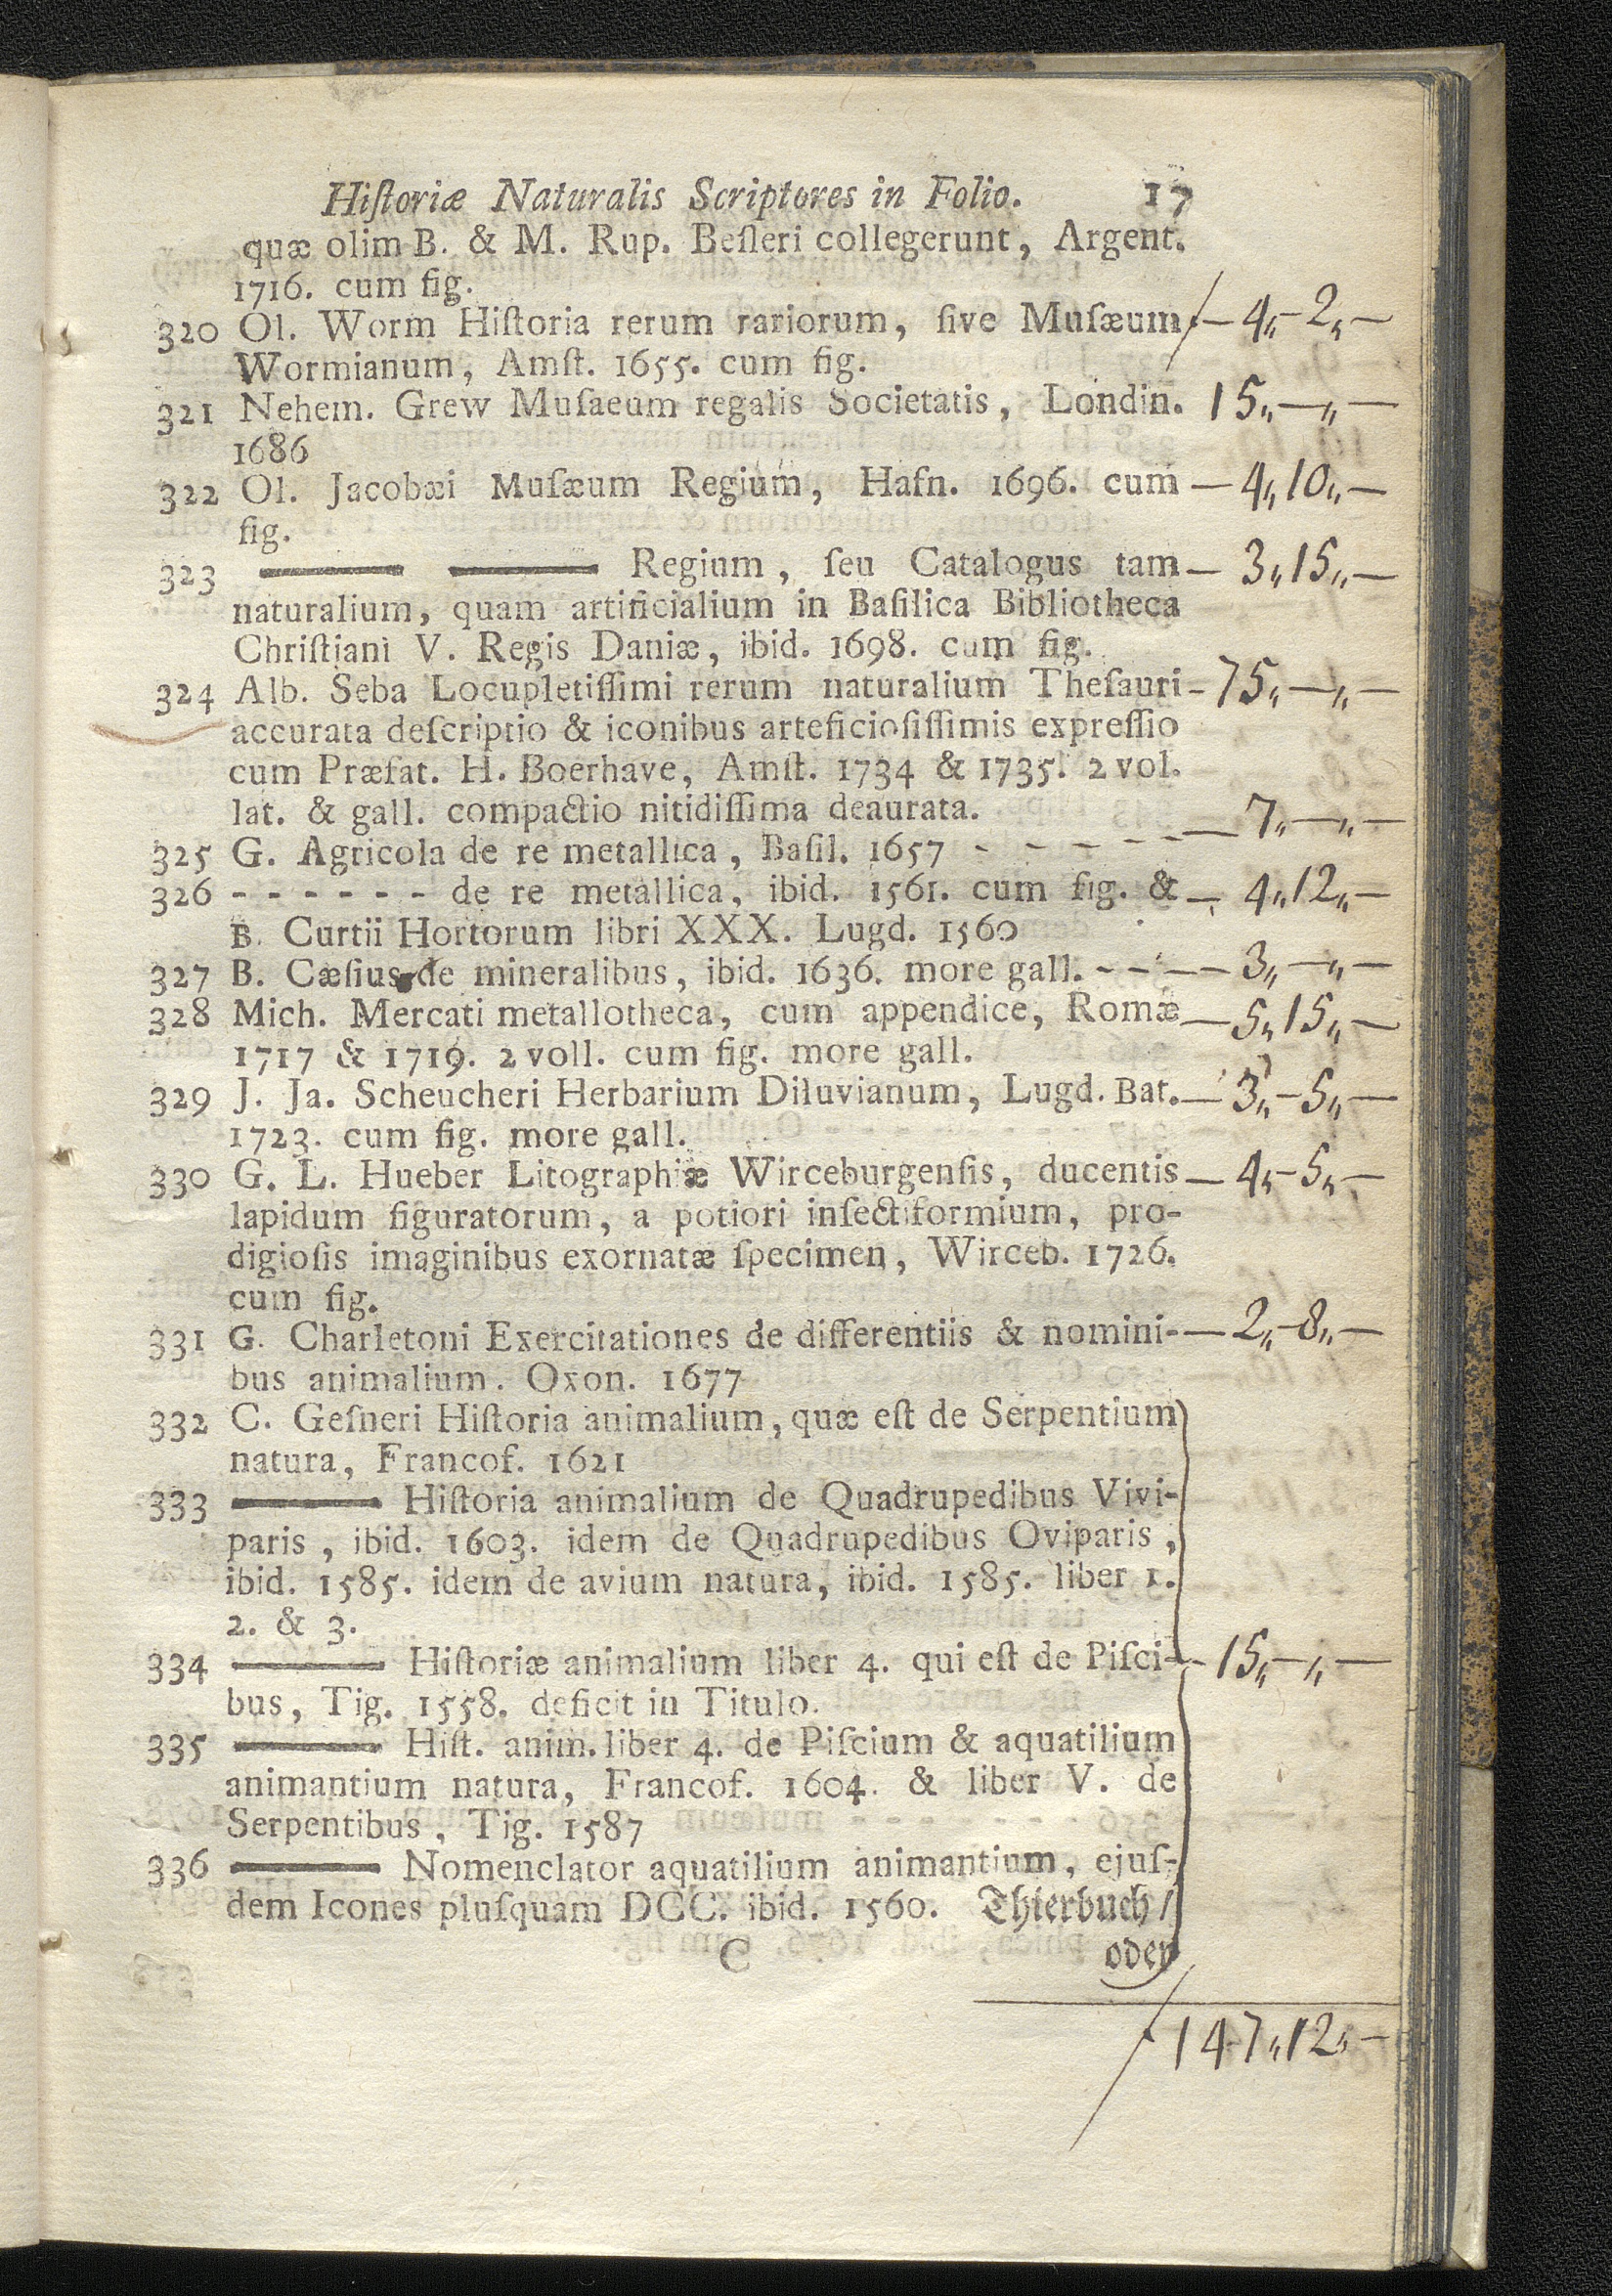 Hiſtoriæ Naturalis Scriptores in Folio. 17
quæ olim B. & M. Rup. Beſleri collegerunt, Argent.
1716. cum fig.
320 Ol. Worm Hiſtoria rerum rariorum, ſive Muſæum — 4,,-2,,—
Wormianum, Amſt. 1655. cum fig.
321 Nehem. Grew Muſaeum regalis Societatis, Londin. 15,,—,,—
1686
322 Ol. Jacobæi Muſæum Regium, Hafn. 1696. cum — 4,,10,,—
fig.
323 —— —— Regium, ſeu Catalogus tam — 3,,15,,—
naturalium, quam artificialium in Baſilica Bibliotheca
Chriſtiani V. Regis Daniæ, ibid. 1698. cum fig.
324 Alb. Seba Locupletiſſimi rerum naturalium Theſauri - 75,,—,,—
accurata deſcriptio & iconibus arteficioſiſſimis expreſſio
cum Præfat. H. Boerhave, Amſt. 1734 & 1735. 2 vol.
lat. & gall. compactio nitidiſſima deaurata.
325 G. Agricola de re metallica, Baſil. 1657 - - - - - — 7,,—,,—
326 - - - - - - de re metallica, ibid. 1561. cum fig. & — 4,,12,,—
B. Curtii Hortorum libri XXX. Lugd. 1560
327 B. Cæſius de mineralibus, ibid. 1636. more gall. - - - — 3,,—,,—
328 Mich. Mercati metallotheca, cum appendice, Romæ — 5,,15,,—
1717 & 1719. 2 voll. cum fig. more gall.
329 J. Ja. Scheucheri Herbarium Diluvianum, Lugd. Bat. — 3,,-5,,—
1723. cum fig. more gall.
330 G. L. Hueber Litographiæ Wirceburgenſis, ducentis — 4,,-5,,—
lapidum figuratorum, a potiori inſectiformium, pro-
digioſis imaginibus exornatæ ſpecimen, Wirceb. 1726.
cum fig.
331 G. Charletoni Exercitationes de differentiis & nomini- — 2,,-8,,—
bus animalium. Oxon. 1677
332 C. Geſneri Hiſtoria animalium, quæ eſt de Serpentium
natura, Francof. 1621
333 —— Hiſtoria animalium de Quadrupedibus Vivi-
paris, ibid. 1603. idem de Quadrupedibus Oviparis,
ibid. 1585. idem de avium natura, ibid. 1585. liber 1.
2. & 3.
334 —— Hiſtoriæ animalium liber 4. qui eſt de Piſci- - 15,,—,,—
bus, Tig. 1558. deficit in Titulo.
335 —— Hiſt. anim. liber 4. de Piſcium & aquatilium
animantium natura, Francof. 1604. & liber V. de
Serpentibus, Tig. 1587
336 —— Nomenclator aquatilium animantium, ejuſ-
dem Icones pluſquam DCC. ibid. 1560. Thierbuch /
C oder
147,,12,,—